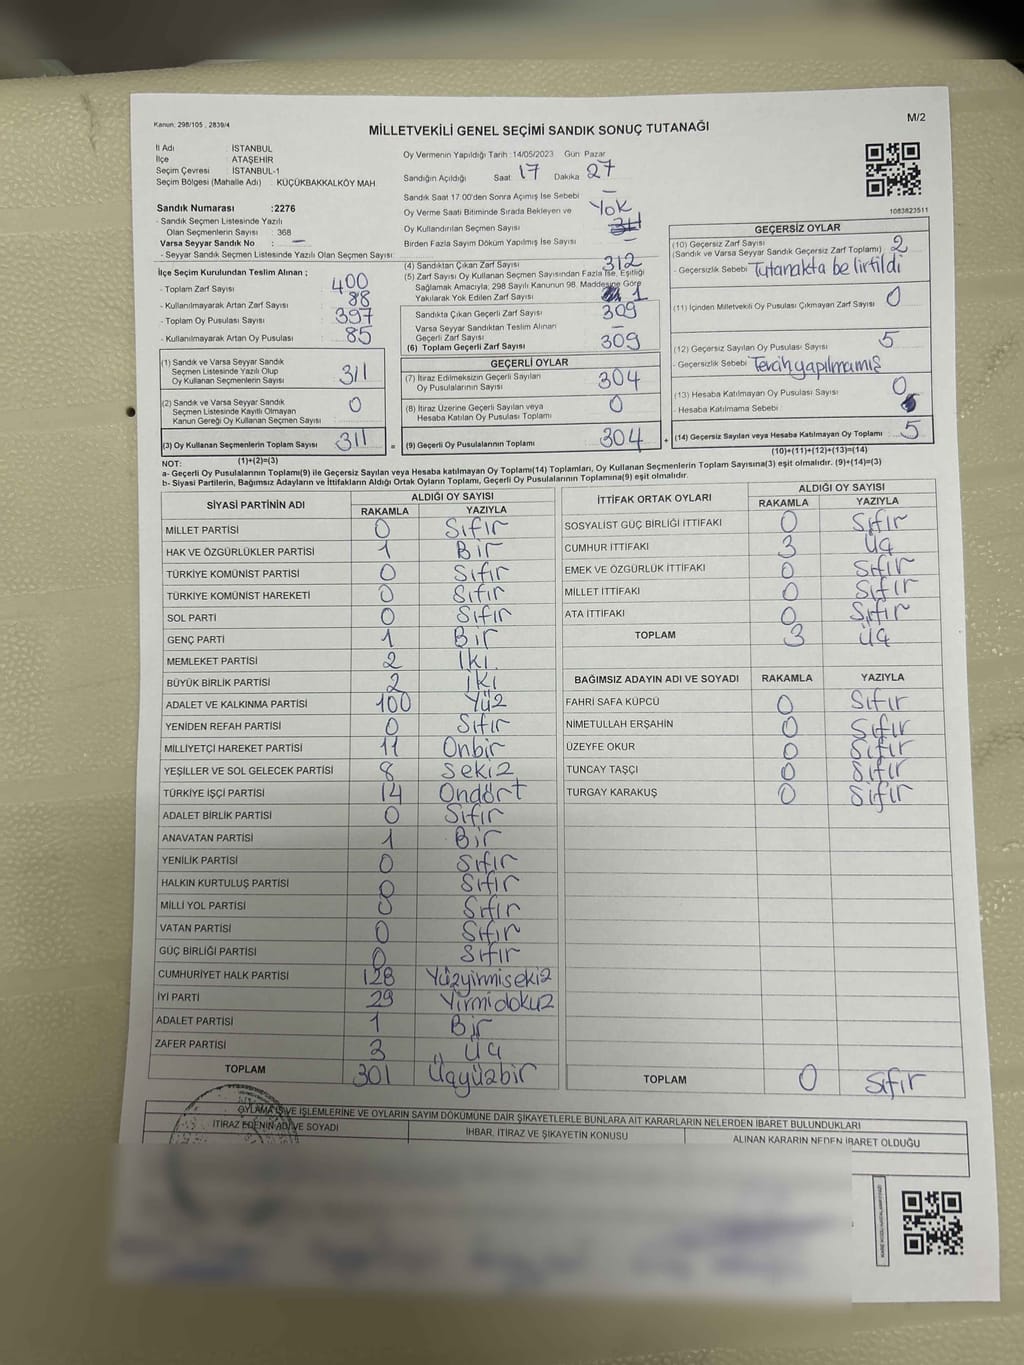 Kanun: 298/105 , 2839/4
M/2
MİLLETVEKİLİ GENEL SEÇİMİ SANDIK SONUÇ TUTANAĞI
İl Adı : İSTANBUL
İlçe : ATAŞEHİR
Seçim Çevresi : İSTANBUL-1
Seçim Bölgesi (Mahalle Adı) : KÜÇÜKBAKKALKÖY MAH
Sandık Numarası :2276
- Sandık Seçmen Listesinde Yazılı
Olan Seçmenlerin Sayısı : 368
Varsa Seyyar Sandık No : —
- Seyyar Sandık Seçmen Listesinde Yazılı Olan Seçmen Sayısı
Oy Vermenin Yapıldığı Tarih :14/05/2023 Gün Pazar
Sandığın Açıldığı Saat: 17 Dakika 27
Sandık Saat 17.00'den Sonra Açımış İse Sebebi —
Oy Verme Saati Bitiminde Sırada Bekleyen ve Yok
Oy Kullandırılan Seçmen Sayısı
Birden Fazla Sayım Döküm Yapılmış İse Sayısı —
1083823511
İlçe Seçim Kurulundan Teslim Alınan ;
- Toplam Zarf Sayısı 400
- Kullanılmayarak Artan Zarf Sayısı 88
- Toplam Oy Pusulası Sayısı 397
- Kullanılmayarak Artan Oy Pusulası 85
(1) Sandık ve Varsa Seyyar Sandık
Seçmen Listesinde Yazılı Olup
Oy Kullanan Seçmenlerin Sayısı 311
(2) Sandık ve Varsa Seyyar Sandık
Seçmen Listesinde Kayıtlı Olmayan
Kanun Gereği Oy Kullanan Seçmen Sayısı 0
(3) Oy Kullanan Seçmenlerin Toplam Sayısı 311
(1)+(2)=(3)
(4) Sandıktan Çıkan Zarf Sayısı 312
(5) Zarf Sayısı Oy Kullanan Seçmen Sayısından Fazla İse, Eşitliği
Sağlamak Amacıyla, 298 Sayılı Kanunun 98. Maddesine Göre
Yakılarak Yok Edilen Zarf Sayısı 1
Sandıkta Çıkan Geçerli Zarf Sayısı 309
Varsa Seyyar Sandıktan Teslim Alınan
Geçerli Zarf Sayısı —
(6) Toplam Geçerli Zarf Sayısı 309
GEÇERLİ OYLAR
(7) İtiraz Edilmeksizin Geçerli Sayılan
Oy Pusulalarının Sayısı 304
(8) İtiraz Üzerine Geçerli Sayılan veya
Hesaba Katılan Oy Pusulası Toplamı 0
= (9) Geçerli Oy Pusulalarının Toplamı 304 +
GEÇERSİZ OYLAR
(10) Geçersiz Zarf Sayısı
(Sandık ve Varsa Seyyar Sandık Geçersiz Zarf Toplamı) 2
- Geçersizlik Sebebi Tutanakta belirtildi
(11) İçinden Milletvekili Oy Pusulası Çıkmayan Zarf Sayısı 0
(12) Geçersiz Sayılan Oy Pusulası Sayısı 5
- Geçersizlik Sebebi Tercih yapılmamış
(13) Hesaba Katılmayan Oy Pusulası Sayısı 0
- Hesaba Katılmama Sebebi
(14) Geçersiz Sayılan veya Hesaba Katılmayan Oy Toplamı 5
(10)+(11)+(12)+(13)=(14)
NOT:
a- Geçerli Oy Pusulalarının Toplamı(9) ile Geçersiz Sayılan veya Hesaba katılmayan Oy Toplamı(14) Toplamları, Oy Kullanan Seçmenlerin Toplam Sayısına(3) eşit olmalıdır. (9)+(14)=(3)
b- Siyasi Partilerin, Bağımsız Adayların ve İttifakların Aldığı Ortak Oyların Toplamı, Geçerli Oy Pusulalarının Toplamına(9) eşit olmalıdır.
SİYASİ PARTİNİN ADI ALDIĞI OY SAYISI
RAKAMLA YAZIYLA
MİLLET PARTİSİ 0 Sıfır
HAK VE ÖZGÜRLÜKLER PARTİSİ 1 Bir
TÜRKİYE KOMÜNİST PARTİSİ 0 Sıfır
TÜRKİYE KOMÜNİST HAREKETİ 0 Sıfır
SOL PARTİ 0 Sıfır
GENÇ PARTİ 1 Bir
MEMLEKET PARTİSİ 2 İki
BÜYÜK BİRLİK PARTİSİ 2 İki
ADALET VE KALKINMA PARTİSİ 100 Yüz
YENİDEN REFAH PARTİSİ 0 Sıfır
MİLLİYETÇİ HAREKET PARTİSİ 11 Onbir
YEŞİLLER VE SOL GELECEK PARTİSİ 8 Sekiz
TÜRKİYE İŞÇİ PARTİSİ 14 Ondört
ADALET BİRLİK PARTİSİ 0 Sıfır
ANAVATAN PARTİSİ 1 Bir
YENİLİK PARTİSİ 0 Sıfır
HALKIN KURTULUŞ PARTİSİ 0 Sıfır
MİLLİ YOL PARTİSİ 0 Sıfır
VATAN PARTİSİ 0 Sıfır
GÜÇ BİRLİĞİ PARTİSİ 0 Sıfır
CUMHURİYET HALK PARTİSİ 128 Yüzyirmisekiz
İYİ PARTİ 29 Yirmidokuz
ADALET PARTİSİ 1 Bir
ZAFER PARTİSİ 3 Üç
TOPLAM 301 Üçyüzbir
İTTİFAK ORTAK OYLARI ALDIĞI OY SAYISI
RAKAMLA YAZIYLA
SOSYALİST GÜÇ BİRLİĞİ İTTİFAKI 0 Sıfır
CUMHUR İTTİFAKI 3 Üç
EMEK VE ÖZGÜRLÜK İTTİFAKI 0 Sıfır
MİLLET İTTİFAKI 0 Sıfır
ATA İTTİFAKI 0 Sıfır
TOPLAM 3 Üç
BAĞIMSIZ ADAYIN ADI VE SOYADI RAKAMLA YAZIYLA
FAHRİ SAFA KÜPCÜ 0 Sıfır
NİMETULLAH ERŞAHİN 0 Sıfır
ÜZEYFE OKUR 0 Sıfır
TUNCAY TAŞÇI 0 Sıfır
TURGAY KARAKUŞ 0 Sıfır
TOPLAM 0 Sıfır
OYLAMA İŞ VE İŞLEMLERİNE VE OYLARIN SAYIM DÖKÜMÜNE DAİR ŞİKAYETLERLE BUNLARA AİT KARARLARIN NELERDEN İBARET BULUNDUKLARI
İTİRAZ EDENİN ADI VE SOYADI İHBAR, İTİRAZ VE ŞİKAYETİN KONUSU ALINAN KARARIN NEDEN İBARET OLDUĞU